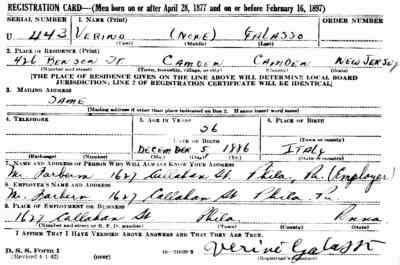 REGISTRATION CARD—(Men born on or after April 28, 1877 and on or before February 16, 1897)
SERIAL NUMBER 1. NAME (Print) ORDER NUMBER
U 443 VERINO (NONE) GALASSO
(First) (Middle) (Last)
2. PLACE OF RESIDENCE (Print)
426 BENSON ST. CAMDEN CAMDEN NEW JERSEY
(Number and street) (Town, township, village, or city) (County) (State)
[THE PLACE OF RESIDENCE GIVEN ON THE LINE ABOVE WILL DETERMINE LOCAL BOARD
JURISDICTION; LINE 2 OF REGISTRATION CERTIFICATE WILL BE IDENTICAL]
3. MAILING ADDRESS
SAME
[Mailing address if other than place indicated on line 2. If same insert word same]
4. TELEPHONE 5. AGE IN YEARS 6. PLACE OF BIRTH
56
DATE OF BIRTH (Town or county)
DECEMBER 5 1886 ITALY
(Exchange) (Number) (Mo.) (Day) (Yr.) (State or country)
7. NAME AND ADDRESS OF PERSON WHO WILL ALWAYS KNOW YOUR ADDRESS
Mr. 1627 Callahan St. Phila, Pa. (Employer)
8. EMPLOYER'S NAME AND ADDRESS
Mr. 1627 Callahan St. Phila. Pa.
9. PLACE OF EMPLOYMENT OR BUSINESS
1627 Callahan St Phila Penna
(Number and street or R. F. D. number) (Town) (County) (State)
I AFFIRM THAT I HAVE VERIFIED ABOVE ANSWERS AND THAT THEY ARE TRUE.
D. S. S. Form 1
(Revised 4-1-42) (over) Verino Galasso
(Registrant's signature)